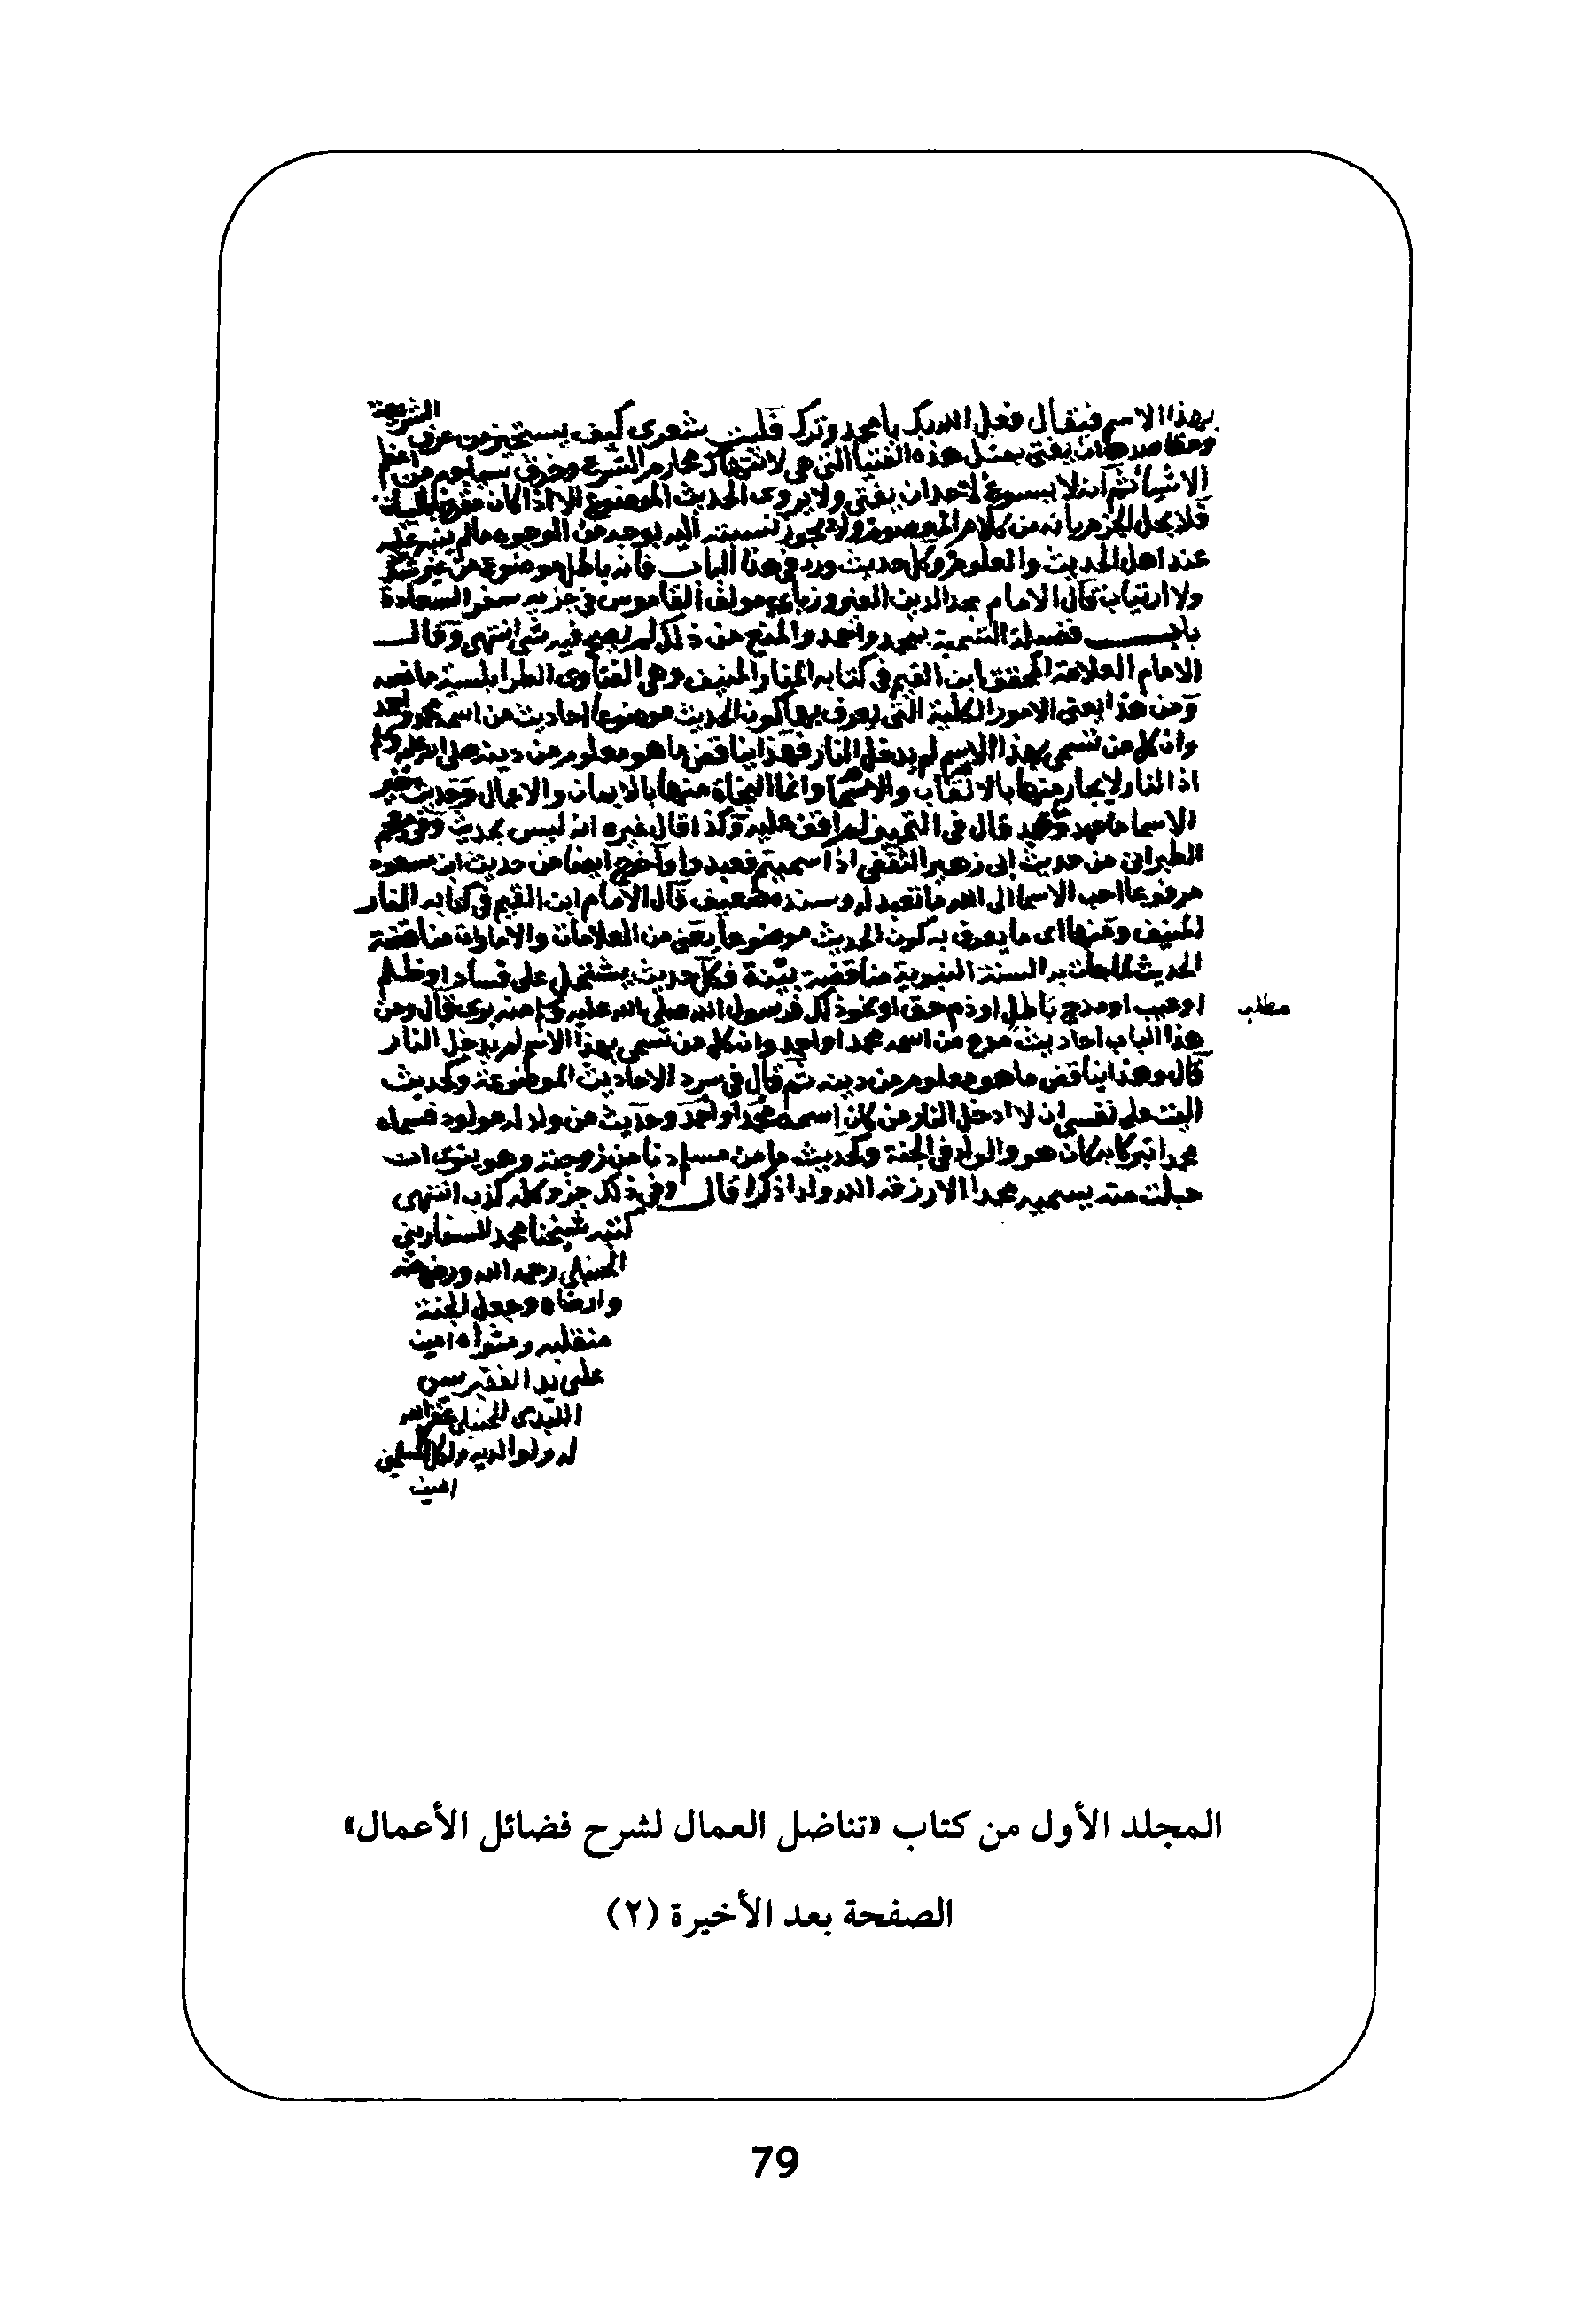 بهذا الاسم فيقال فعل الله بك يا محمد وترك فليت شعري كيف يستجيز من عرف الشريعة
ومقاصدها ان يفتي بمثل هذه الفتيا التي هي لانتهاك محارم الشرع وخرق سياجه من اعظم
الاشيا ثم انه لا يسوغ لاحد ان يفتي ولا يروي الحديث الموضوع الا اذا كان
فلا يحل الجزم بانه من كلام المعصوم ولا يجوز نسبته اليه بوجه من الوجوه مالم ينبه عليه
عند اهل الحديث والعلوم وكل حديث ورد في هذا الباب فانه باطل موضوع من غير شك
ولا ارتياب قال الامام مجد الدين الفيروزبادي مولف القاموس في جزيه سفر السعادة
باب فضيلة التسمية بمحمد واحمد والمنع من ذلك لم يصح فيه شي انتهى وقال
الامام العلامة المحقق ابن القيم في كتابه المنار المنيف وهي الفتاوى الطرابلسية ما نصه
ومن هذا يعني الامور الكلية التي يعرف بها كون الحديث موضوعا احاديث من اسمه محمد واحمد
وان كل من تسمى بهذا الاسم لم يدخل النار فهذا يناقض ماهو معلوم من دينه صلى الله عليه وسلم
اذ النار لا يجار منها بالالقاب والاسما وانما النجاة منها بالايمان والاعمال وحديث خير
الاسما ما عبد وحمد قال في التمييز لم اقف عليه وكذا قال غيره انه ليس بحديث وفي معجم
الطبراني من حديث ابي زهير الثقفي اذا سميتم فعبدوا واخرج ايضا من حديث ابن مسعود
مرفوعا احب الاسما الى الله ما تعبد له وسنده ضعيف قال الامام ابن القيم في كتابه المنار
المنيف ومنها اي ما يعرف به كون الحديث موضوعا يعني من العلامات والامارات مناقضة
الحديث لما جات به السنة النبوية مناقضة بينة فكل حديث يشتمل على فساد او ظلم
او عيب او مدح باطل او ذم حق او نحو ذلك فرسول الله صلى الله عليه وسلم منه بري قال ومن
مطلب
هذا الباب احاديث مدح من اسمه محمد او احمد وان كل من تسمى بهذا الاسم لم يدخل النار
قال وهذا يناقض ماهو معلوم من دينه ثم قال في سرد الاحاديث الموضوعة وكحديث
اليت على نفسي ان لا ادخل النار من كان اسمه محمد او احمد وحديث من ولد له مولود فسماه
محمدا تبركا به كان هو والولد في الجنة وكحديث ما من مسلم دنا من زوجته وهو ينوي ان
حبلت منه يسميه محمدا الا رزقه الله ولدا ذكرا قال وفي ذلك جزو كله كذب انتهى
كتبه شيخنا محمد السفاريني
الحنبلي رحمه الله ورضي عنه
وارضاه وجعل الجنة
منقلبه ومثواه امين
على يد الفقير
اللبدي الحنبلي غفر الله
له ولوالديه ولكل المسلمين
امين
المجلد الأول من كتاب «تناضل العمال لشرح فضائل الأعمال»
الصفحة بعد الأخيرة (٢)
79